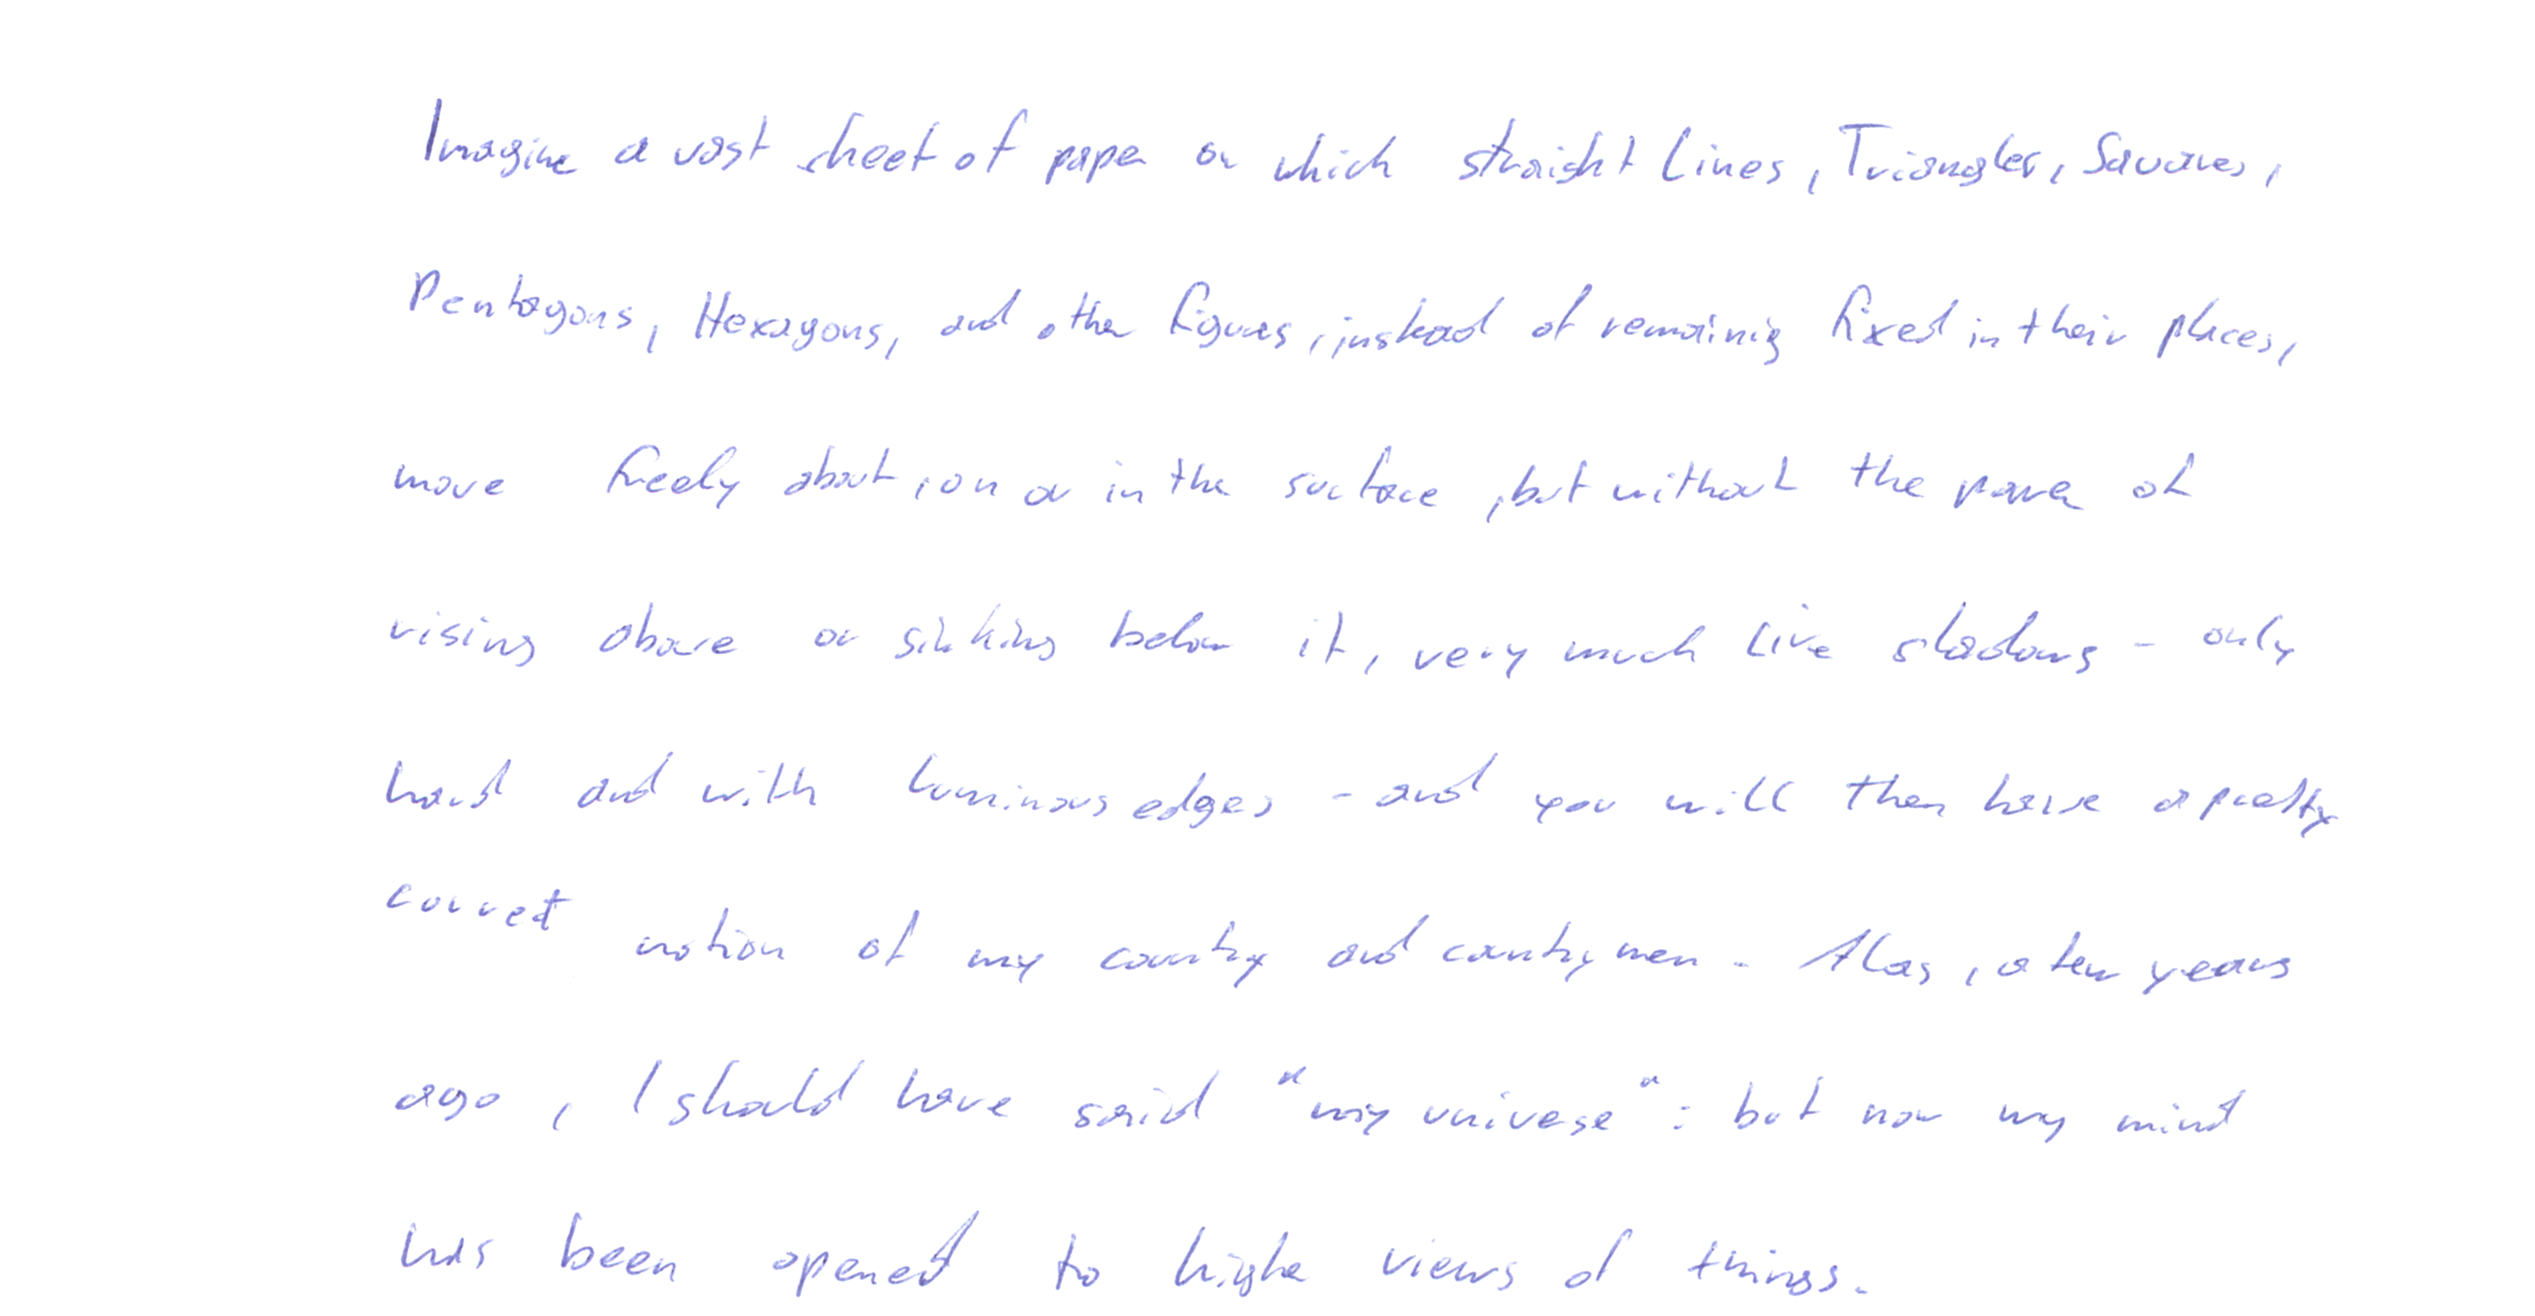 Imagine a vast sheet of paper on which straight Lines, Triangles, Squares,
Pentagons, Hexagons, and other figures, instead of remaining fixed in their places,
move freely about, on or in the surface, but without the power of
rising above or sinking below it, very much like shadows - only
hard and with luminous edges - and you will then have a pretty
correct notion of my country and countrymen. Alas, a few years
ago, I should have said "my universe": but now my mind
has been opened to higher views of things.